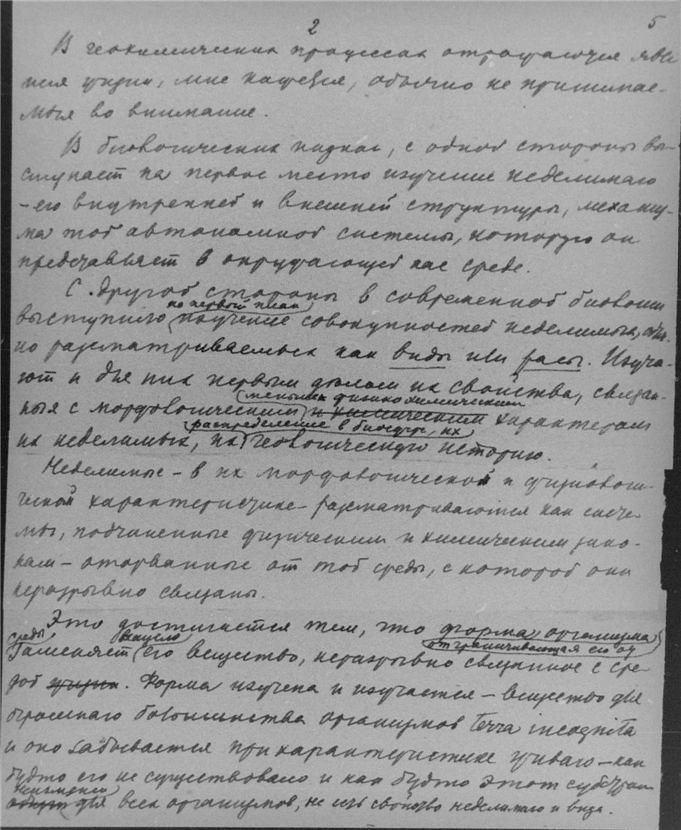 2 5
В геохимических процессах отражаются явле
ния жизни, мне кажется, обычно не принимае-
мыя во внимание.
В биологических науках, с одной стороны вы-
ступает на первое место изучение неделимаго
- его внутренней и внешней структуры, механиз-
ма той автономной системы, которую он
представляет в окружающей нас среде.
С другой стороны в современной биологии
на первый план
выступило изучение совокупностей неделимых,
но рассматриваемых как виды или расы. Изуча-
ют и для них первым делом их свойства, связан-
меньше физико-химическим
ныя с морфологическим и химическим характером
распределение в биосфере, их
их неделимых, их геологическую историю.
Неделимые - в их морфологической и физиологи-
ческой характеристике - рассматриваются как систе-
мы, подчиненные физическим и химическим зако-
нам - оторванные от той среды, с которой они
неразрывно связаны.
Это достигается тем, что форма организма
среды вещело отграничивающая его от
Заменяет его вещество, неразрывно связанное с сре-
дой жизни. Форма изучена и изучается - вещество для
огромнаго большинства организмов terra incognita
и оно забывается при характеристике живого - как
будто его не существовало и как будто этот субстрат
для всех организмов, не есть свойство неделимаго и вида.